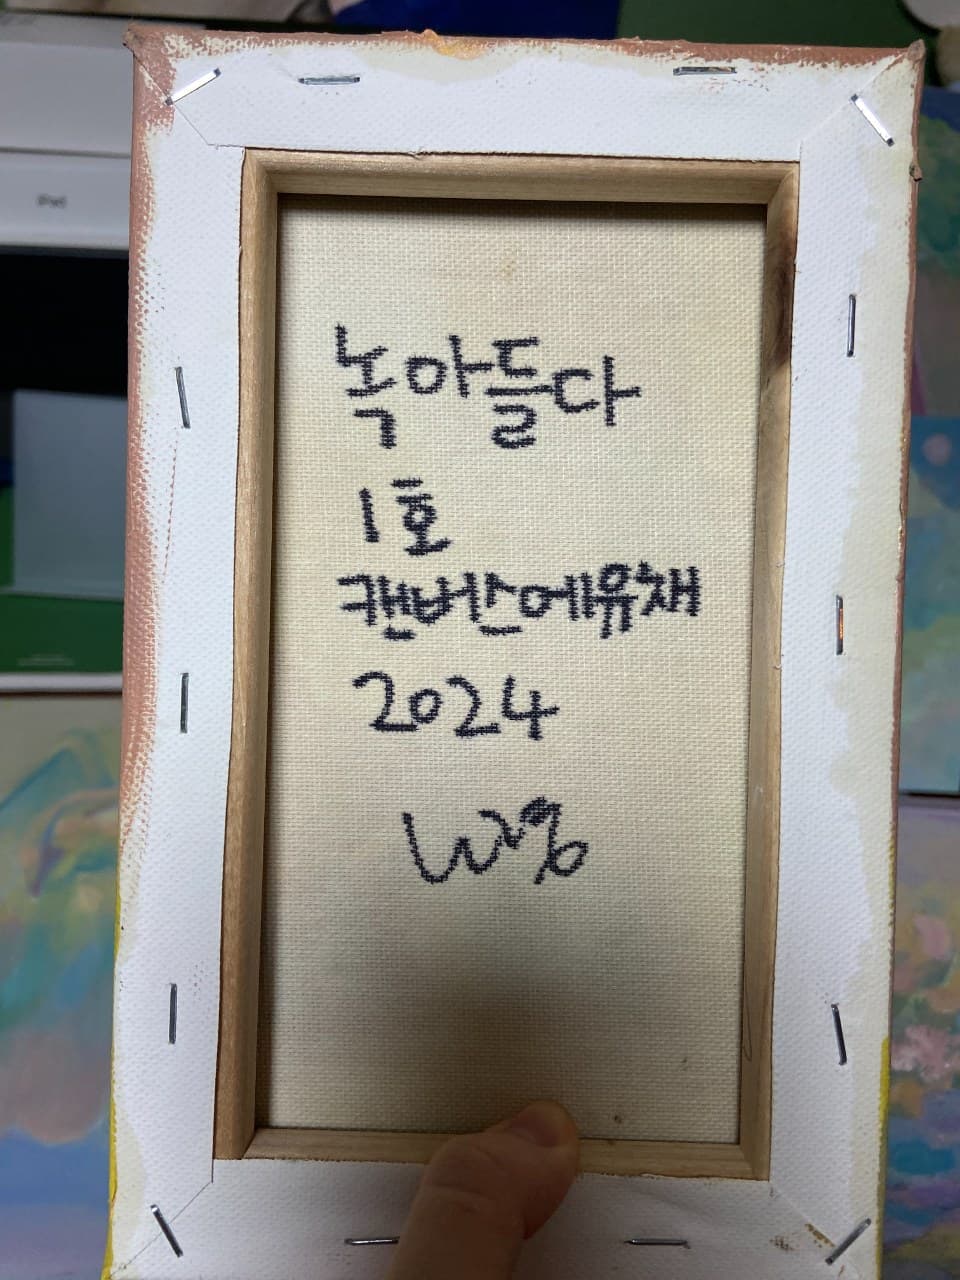 녹아들다
1호
캔버스에유채
2024